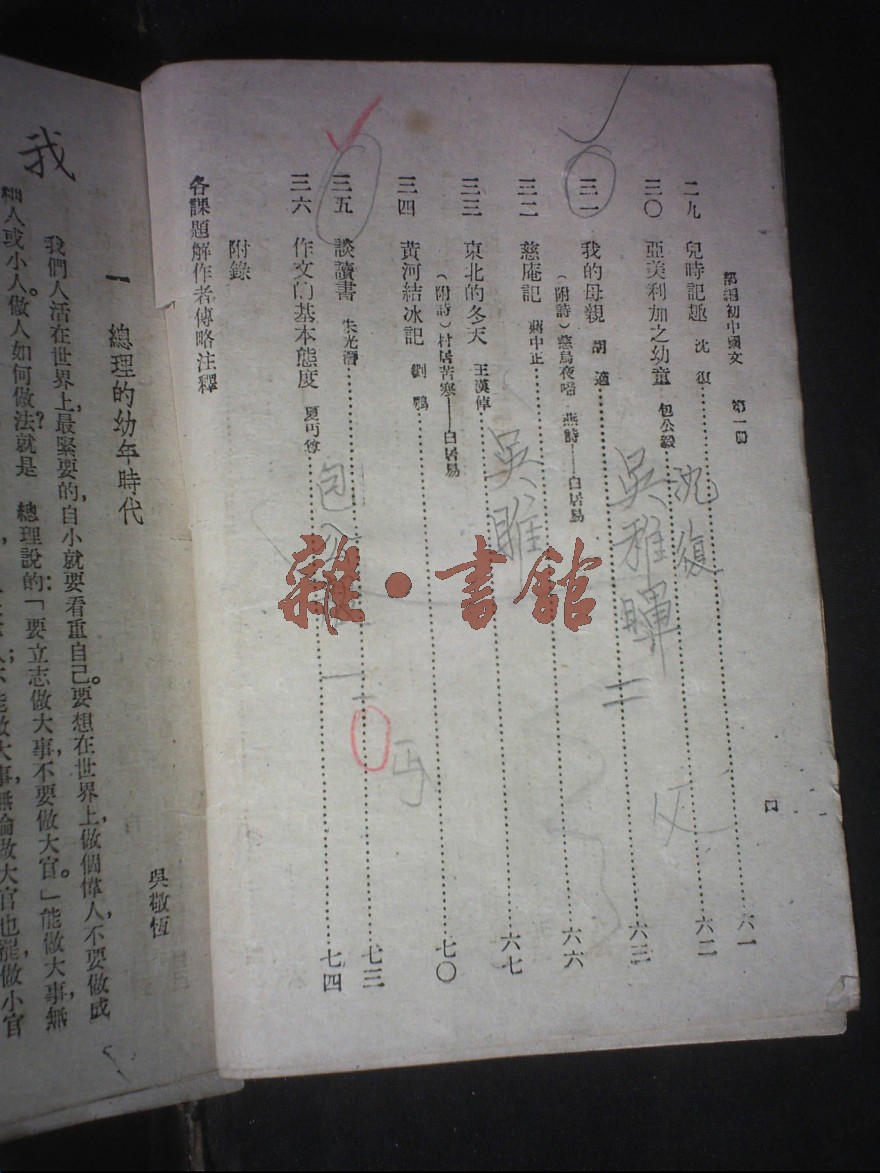 部編初中國文 第一冊
二九 兒時記趣 沈復 六一
三〇 亞美利加之幼童 包公毅 六二
三一 我的母親 胡適 六三
(附詩)慈烏夜啼 燕詩——白居易
三二 慈庵記 蔣中正 六六
三三 東北的冬天 王漢倬 六七
(附詩)村居苦寒——白居易
三四 黃河結冰記 劉鶚 七〇
三五 談讀書 朱光潛 七三
三六 作文的基本態度 夏丏尊 七四
附錄
各課題解作者傳略注釋
四
沈復
吳稚暉
二
吳雎
包公
一
丏
雜·書館
我
一 總理的幼年時代
吳敬恆
我們人活在世界上,最緊要的,自小就要看重自己。要想在世界上,做個偉人,不要做成
細人或小人。做人如何做法?就是 總理說的:「要立志做大事,不要做大官。」能做大事,無
能做大事,無論做大官也罷,做小官